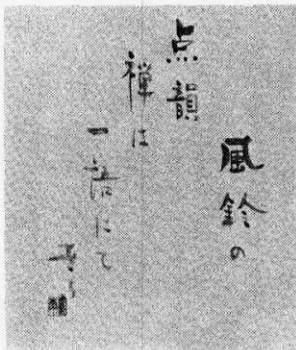 風鈴の
点韻
禅は
一語にて